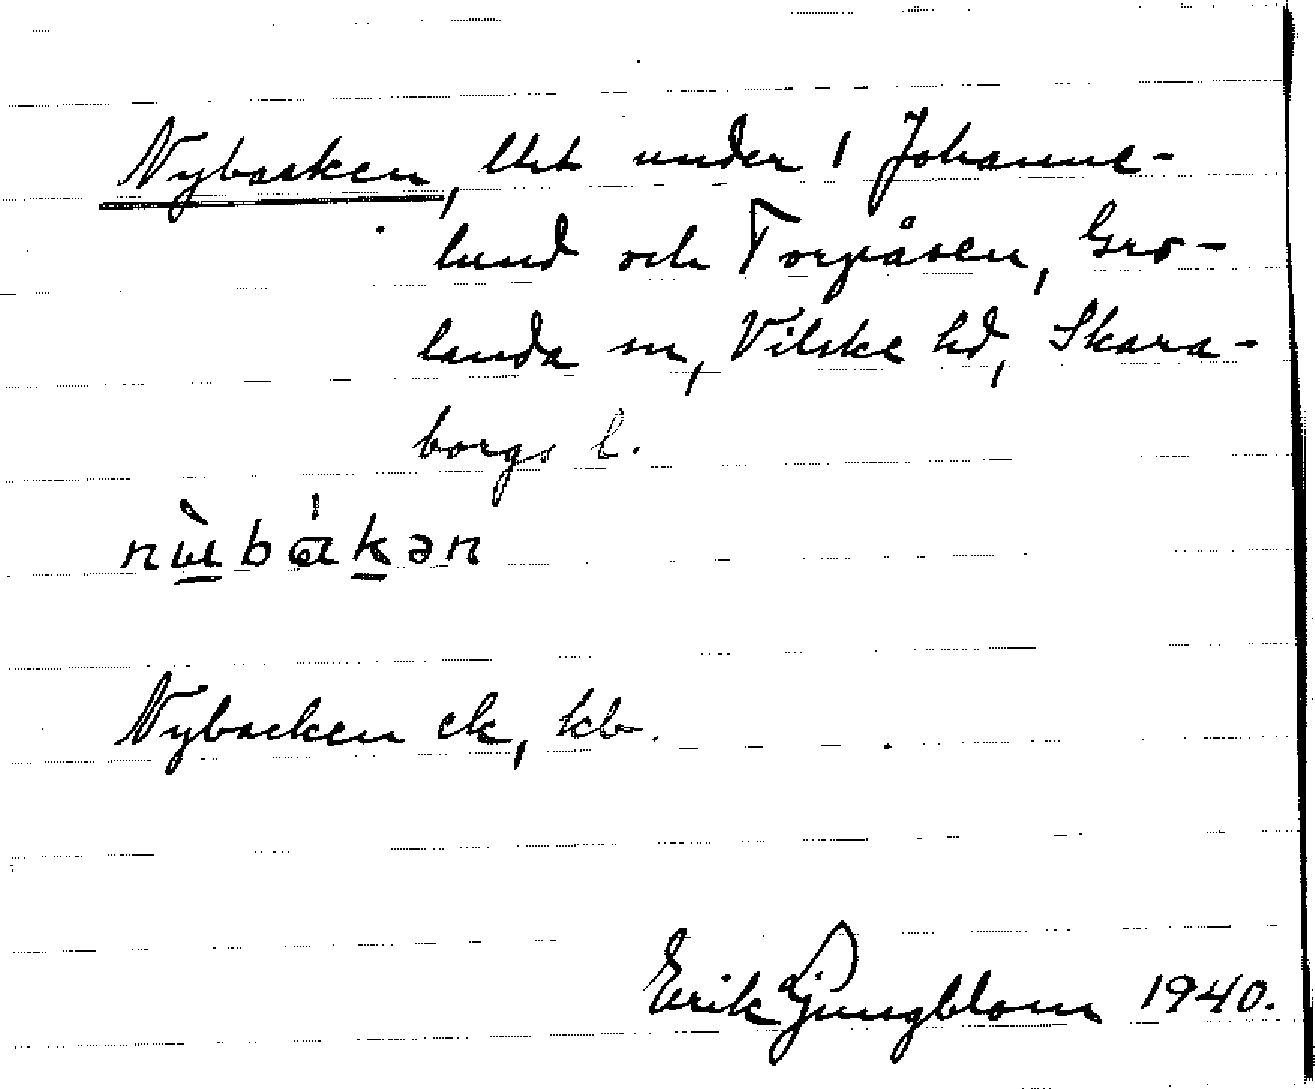 Nybacken, lht under 1 Johanne-
lund och Torpåsen, Gro-
landa sn, Vilske hd, Skara-
borgs l.
Nybacken ek, kb.
Erik Ljungblom 1940.